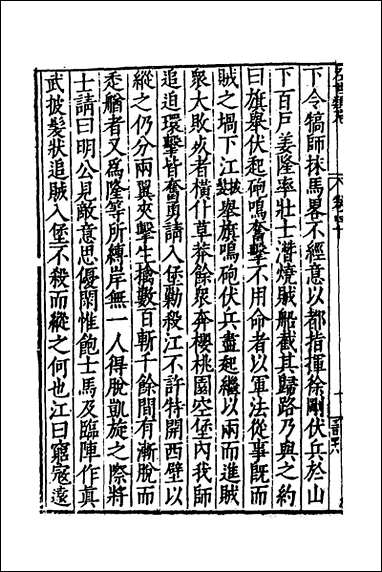 下令犒師抹馬畧不經意以都指揮徐剛伏兵於山
下百戸姜隆率壯士潛燒賊船截其歸路乃與之約
曰旗舉伏起砲鳴奮擊不用命者以軍法從事既而
賊之堝下江披舉旗鳴砲伏兵盡起繼以兩而進賊
衆大敗死者橫什草莽餘衆奔櫻桃園空堡內我師
追迫環擊皆奮勇請入堡勦殺江不許特開西壁以
縱之仍分兩翼夾擊生擒數百斬千餘間有漸脫而
走艏者又爲隆等所縛岸無一人得脫凱旋之際將
士請曰明公見敵意思優閑惟飽士馬及臨陣作眞
武披髮狀追賊入堡不殺而縱之何也江曰窮寇遠